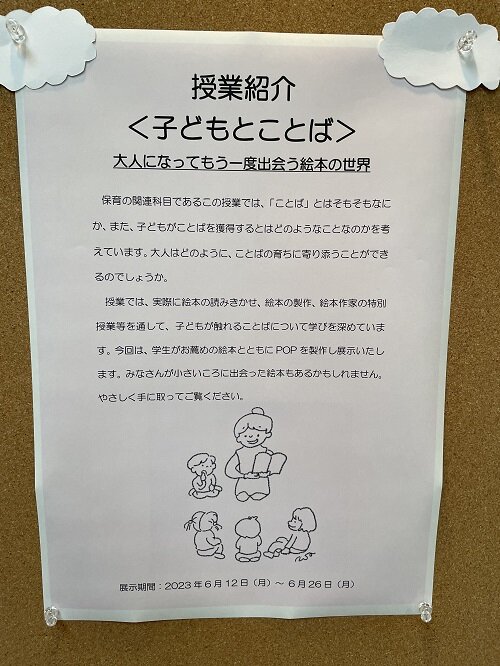 授業紹介
＜子どもとことば＞
大人になってもう一度出会う絵本の世界
保育の関連科目であるこの授業では、「ことば」とはそもそもなに
か、また、子どもがことばを獲得するとはどのようなことなのかを考
えています。大人はどのように、ことばの育ちに寄り添うことができ
るのでしょうか。
授業では、実際に絵本の読みきかせ、絵本の製作、絵本作家の特別
授業等を通して、子どもが触れることばについて学びを深めていま
す。今回は、学生がお薦めの絵本とともに POP を製作し展示いたし
ます。みなさんが小さいころに出会った絵本もあるかもしれません。
やさしく手に取ってご覧ください。
展示期間：2023 年 6 月 12 日（月）～ 6 月 26 日（月）